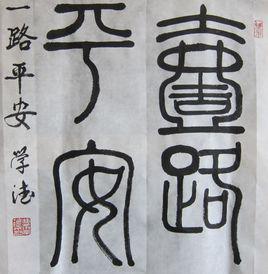 壹路
平安
一路平安 学法